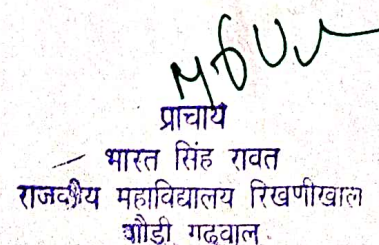 प्राचार्य
भारत सिंह रावत
राजकीय महाविद्यालय रिखणीखाल
पौडी गढवाल.